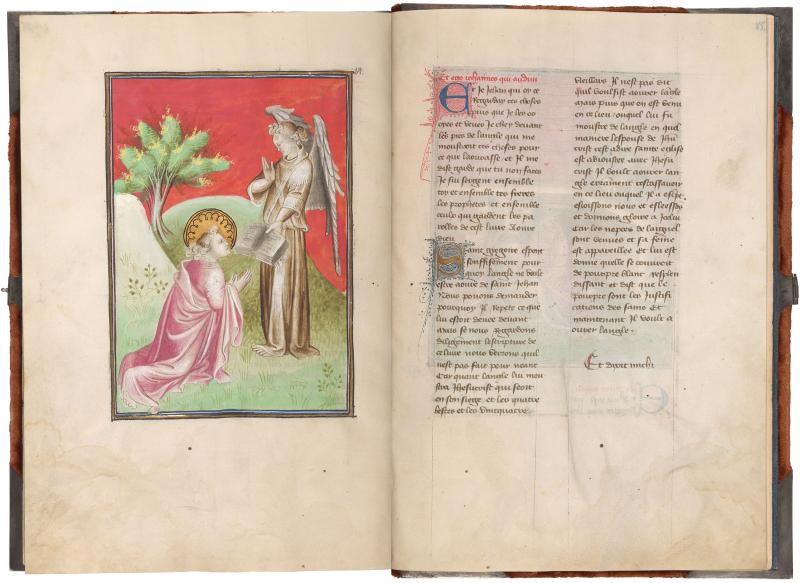 84.
85.
Et ego iohannes qui audiui
Et Je Jehan qui oy et
Regarday ces choses
apres que Je les os
oyes et veues Je chey deuant
les pies de langle qui me
monstroit ces choses pour
ce que laourasse. et Il me
dist garde que tu non faces
Je sui sergent ensemble
toy et ensemble tes freres
les prophetes et ensemble
ceulz qui gardent les pa
rolles de cest liure Aoure
dieu
Saint gregoire espont
souffisamment pour
quoy langle ne voult
estre aoure de saint Jehan
Nous pouons demander
pourquoy Il repete ce que
lui estoit deuee deuant
mais se nous Regardons
diligement lescripture de
ce liure nous verrons quil
nest pas fait pour neant
Car quant langle lui mon
stra Jhesucrist qui seoit
en son siege et les quatre
bestes et les vintquatre
vieillars Il nest pas dit
quil voulsist aourer langle
mais puis que on est venu
en ce lieu ouquel lui fu
monstre de langle en quel
maniere lespouse de Jhu
crist cest a dire sainte eglise
est aioustee auec Jhesu
crist Il voult aourer lan
gle
en ce lieu ouquel Il a
esioissons nous et esleessons
et donnons gloire a
Car les nopces de laignel
sont venues et sa feme
est appareillee Et lui est
donne quelle se couurist
de pourpre blanc resplen
dissant et dist que le
pourpre sont les Justifi
cations des sains Et
maintenant Il voult a
ourer langle.
Et dixit michi